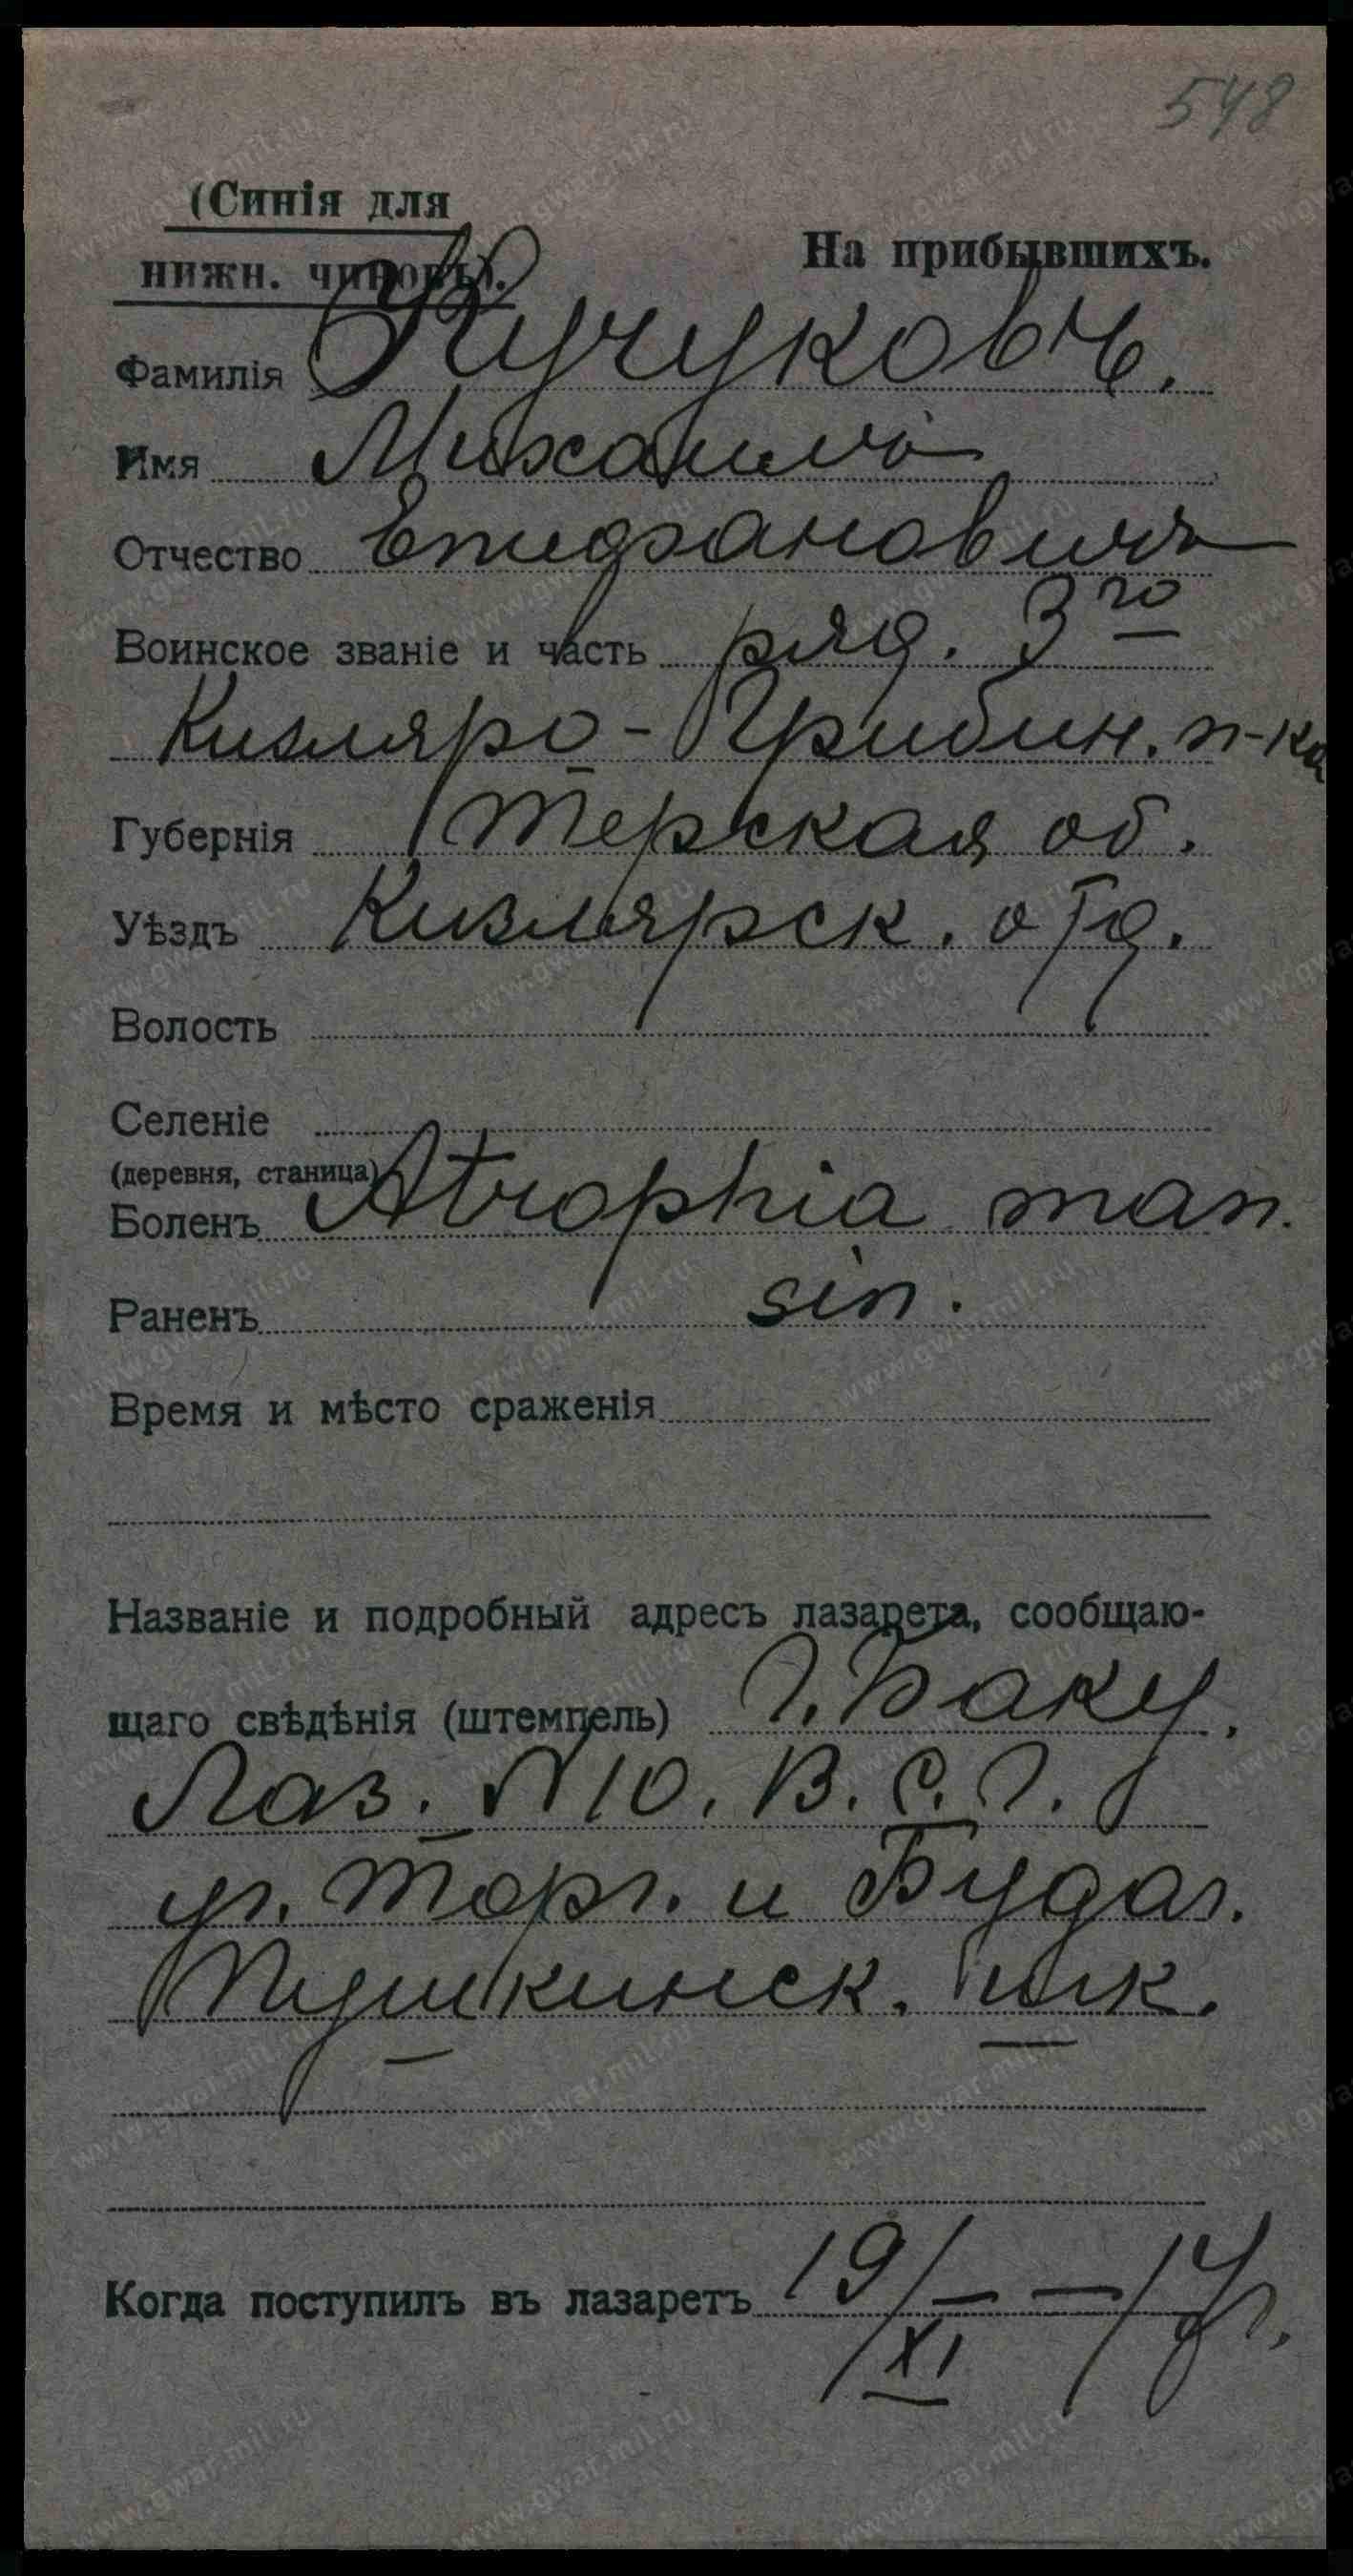 548
(Синія для
нижн. чиновъ).
На прибывшихъ.
Фамилія Кучуковъ.
Имя Михаилъ
Отчество Епифановичъ
Воинское званіе и часть ряд. 3го
Кизляро-Грибин. п-ка
Губернія Терская об.
Уѣздъ Кизлярск. отд.
Волость
Селеніе
(деревня, станица)
Боленъ Atrophia man.
Раненъ sin.
Время и мѣсто сраженія
Названіе и подробный адресъ лазарета, сообщаю-
щаго свѣдѣнія (штемпель) г. Баку.
Лаз. №10. В. С. Г.
уг. Торг. и Будаг.
Пушкинск. шк.
Когда поступилъ въ лазаретъ 19/XI — 17г.